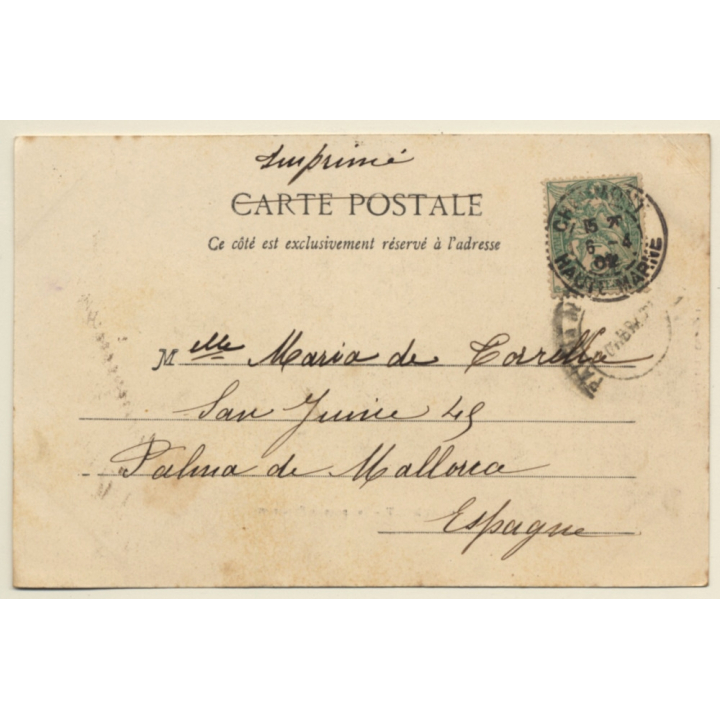 Imprimé
CARTE POSTALE
Ce côté est exclusivement réservé à l'adresse
CHAUMONT
15
6 - 4
02
HAUTE-MARNE
Mlle Maria de Torrella
San Jaime 45
Palma de Mallorca
Espagne